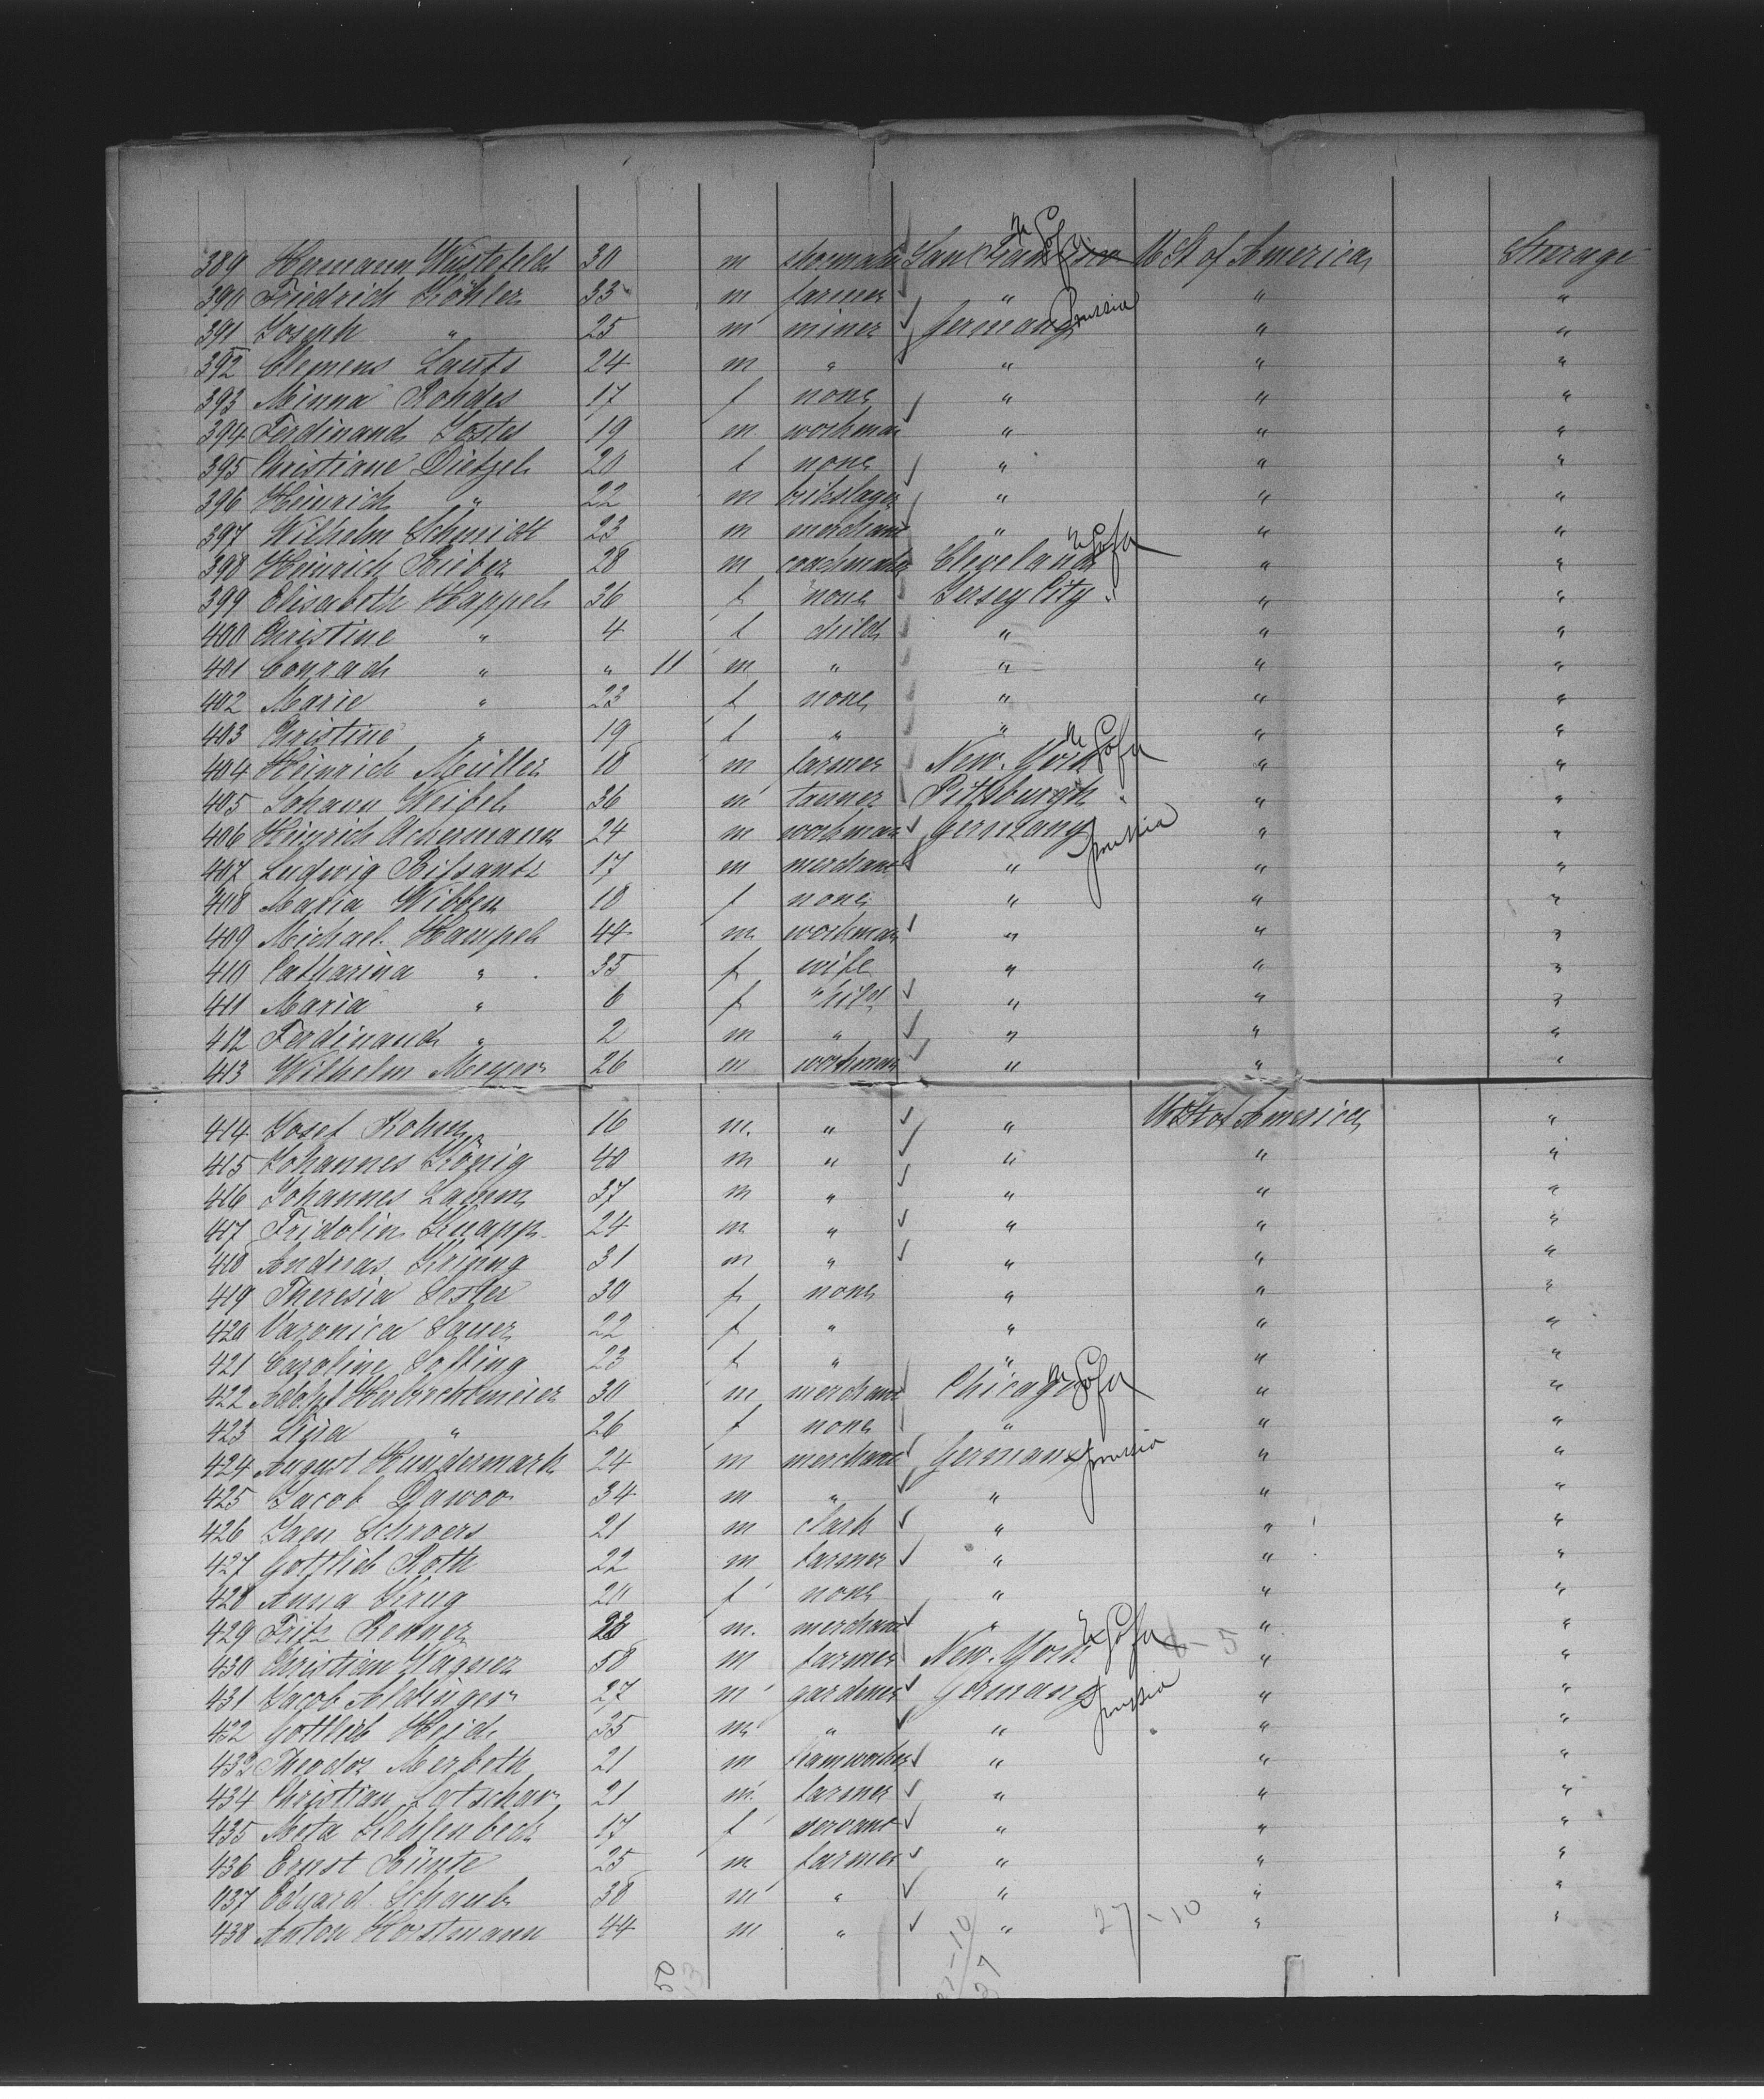 389 Hermann Wüstefeld 30 m shoemaker San U S of A U St of America Steerage
390 Friedrich Köhler 35 m farmer " " "
391 Joseph " 25 m miner Germany Prussia " "
392 Clemens Lauts 24 m " " " "
393 Minna Rohdes 17 f none " " "
394 Ferdinand Jostes 19 m workman " " "
395 Christiane Dietzel 20 f none " " "
396 Heinrich " 22 m brikslager " " "
397 Wilhelm Schmidt 23 m merchant " " "
398 Heinrich Bieber 28 m coachmaker Cleveland U S of A " "
399 Elisabeth Happel 36 f none Jersey City " " "
400 Christine " 4 f child " " "
401 Conrad " " 11 m " " " "
402 Marie " 23 f none " " "
403 Christine " 19 f " " " "
404 Heinrich Müller 18 m farmer New-York U S of A " "
405 Johann Weibel 36 m tanner Pittsburgh " " "
406 Heinrich Ackermann 24 m workman Germany Prussia " "
407 Ludwig Bissantz 17 m merchant " " "
408 Maria Wibben 18 f none " " "
409 Michael Hampel 44 m workman " " "
410 Catharina " 35 f wife " " "
411 Maria " 6 f child " " "
412 Ferdinand " 2 m " " " "
413 Wilhelm Meyer 26 m workman " " "
414 Josef Kohn 16 m. " " U St of America "
415 Johannes König 40 m " " " "
416 Johannes Lamm 37 m " " " "
417 Fridolin Knapp 24 m " " " "
418 Andreas 31 m " " " "
419 Theresia Sester 30 f none " " "
420 Varonica Sauer 22 f " " " "
421 Caroline Solting 23 f " " " "
422 Adolph 30 m merchant Chicago U S of A " "
423 Lina " 26 f none " " "
424 August Hundermark 24 m merchant Germany Prussia " "
425 Jacob 34 m " " " "
426 Schroers 21 m clark " " "
427 Gottlieb Roth 22 m farmer " " "
428 Anna Krug 20 f none " " "
429 Fritz Renner 23 m. merchant " " "
430 Christian Wagner 58 m farmer New-York U S of A 5 " "
431 Jacob Aldinger 27 m gardener Germany Prussia " "
432 Gottlieb Heid 35 m " " " "
433 Theodor Merboth 21 m " " "
434 Christian 21 m farmer " " "
435 Meta 17 f servant " " "
436 Ernst Bünte 25 m farmer " " "
437 Eduard Schaub 38 m " " " "
438 Anton Horstmann 44 m " " 27-10 " "
50